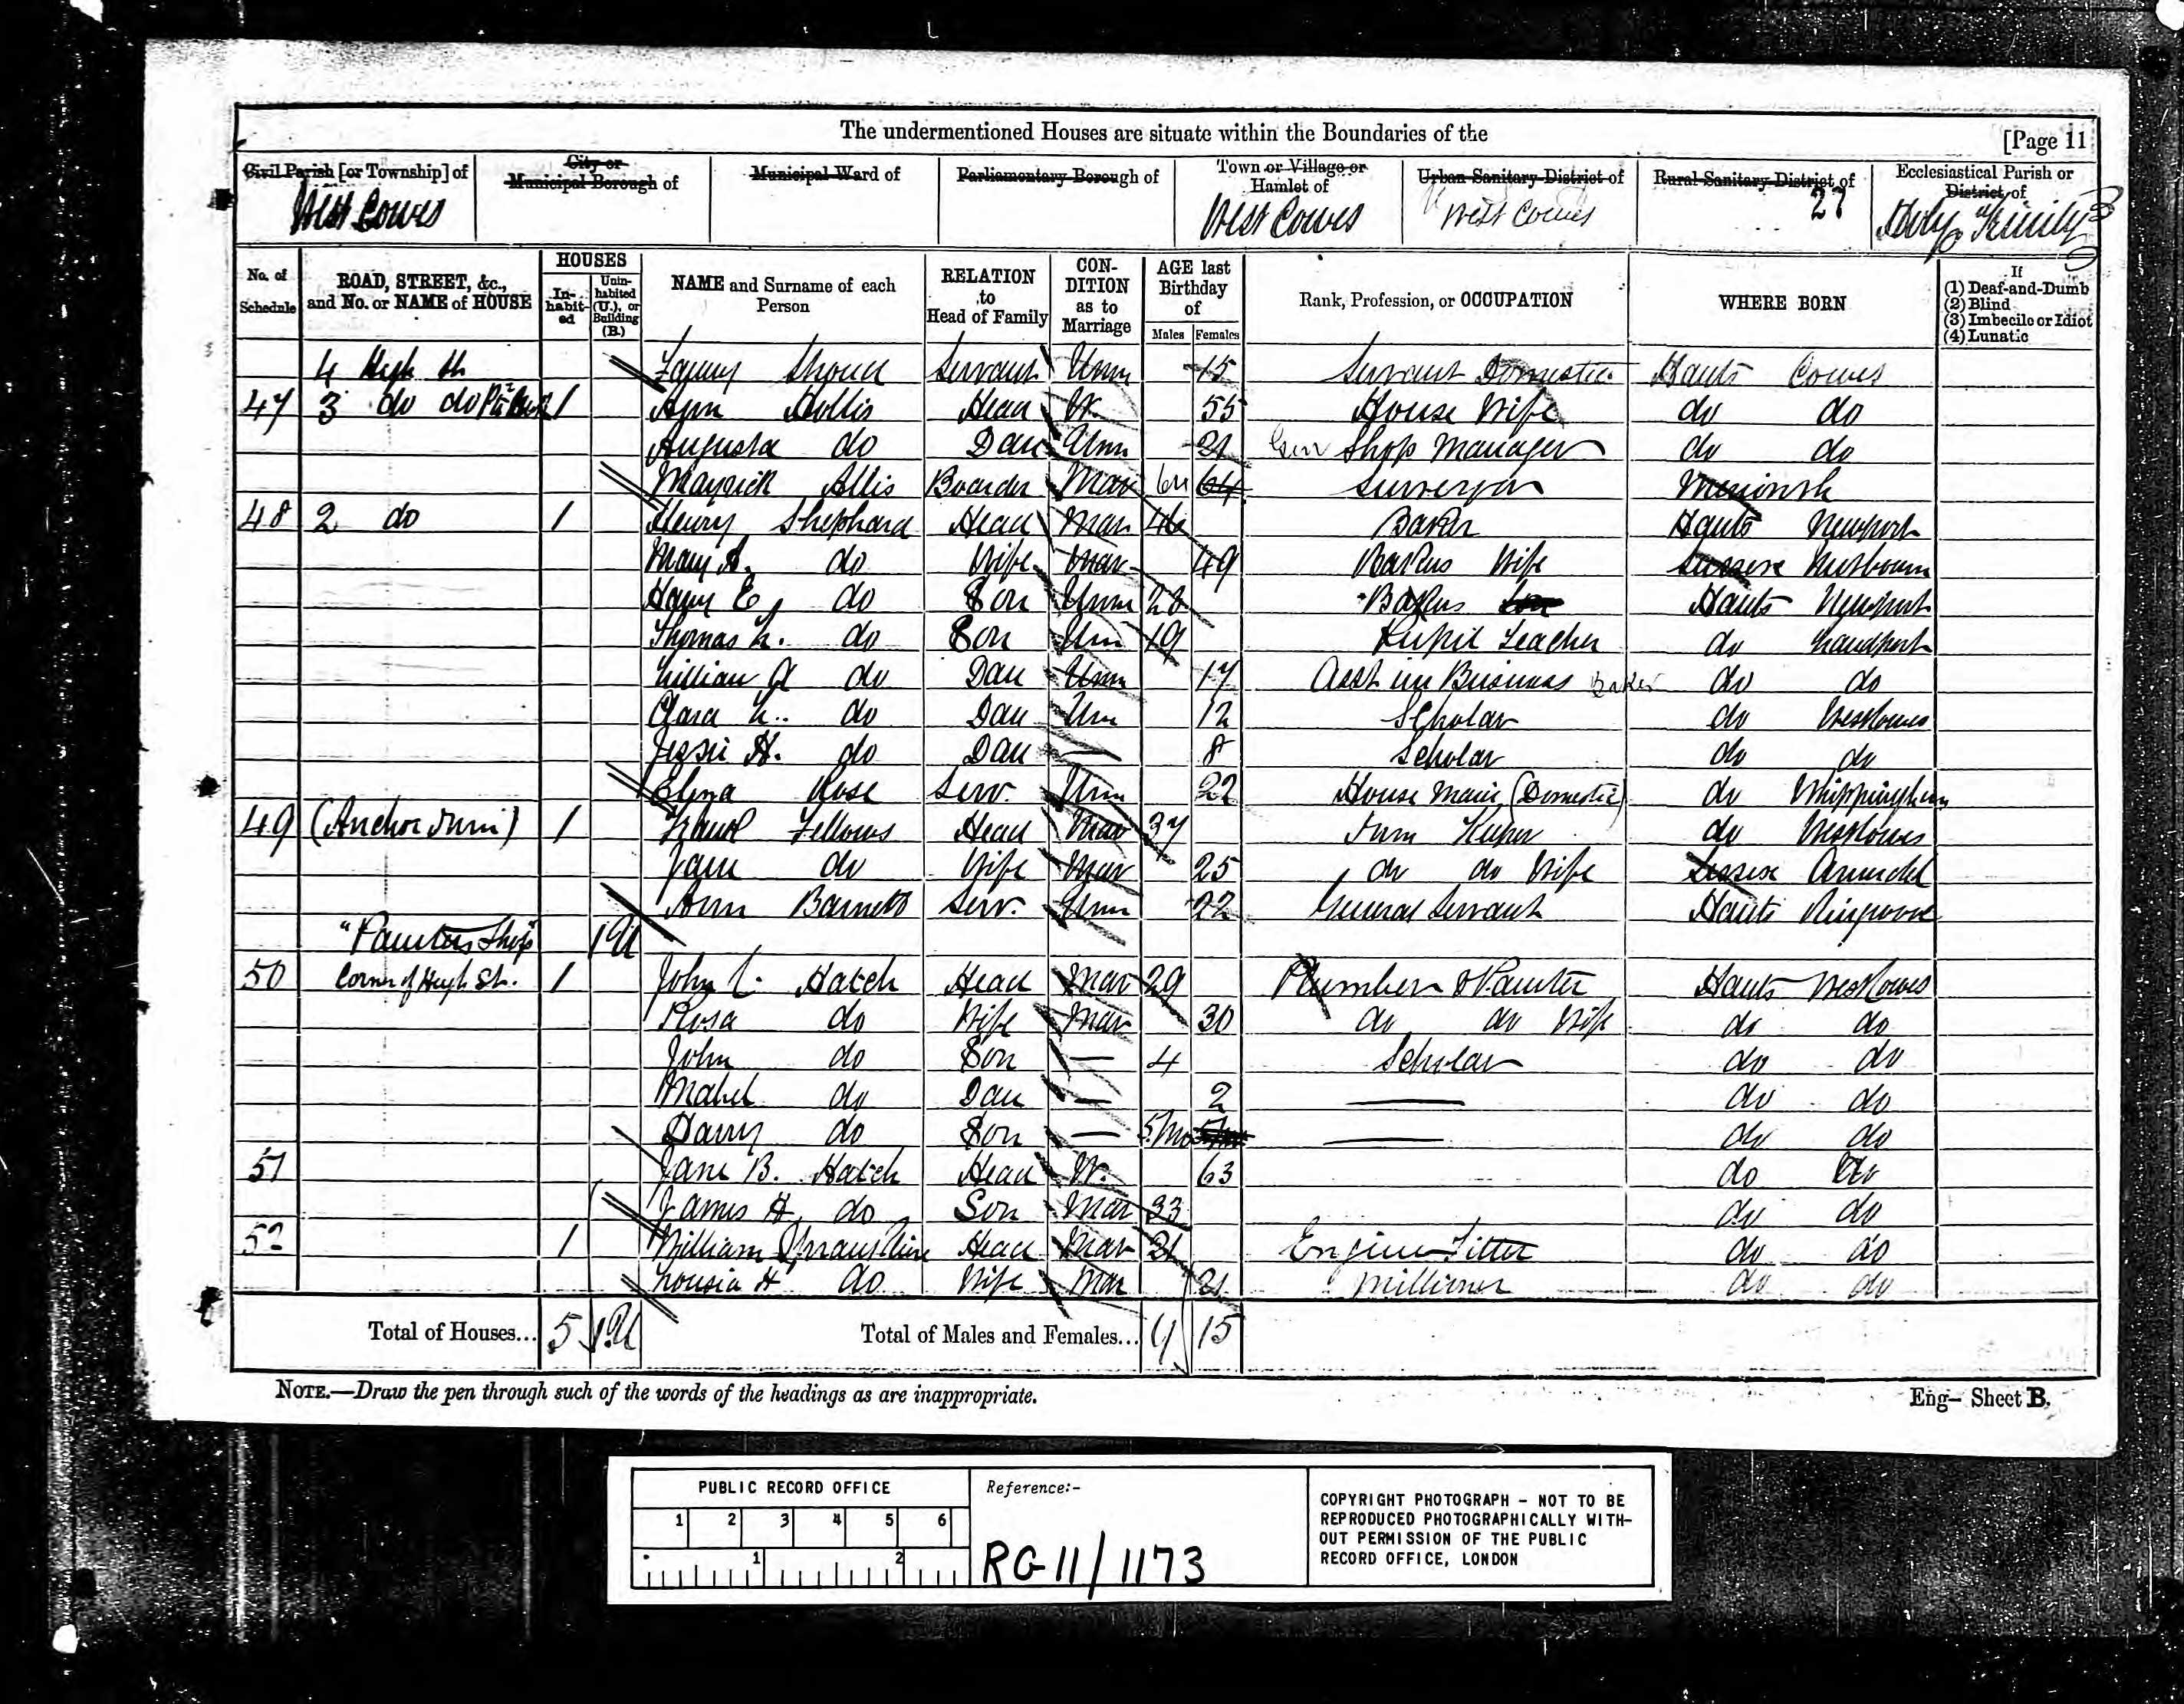 The undermentioned Houses are situate within the Boundaries of the
[Page 11
Civil Parish [or Township] of
City or Municipal Borough of
Municipal Ward of
Parliamentary Borough of
Town or Village or Hamlet of
Urban Sanitary District of
Rural Sanitary District of
Ecclesiastical Parish or District of
West Cowes
West Cowes
West Cowes
27
Holy Trinity
No. of Schedule
ROAD, STREET, &c., and No. or NAME of HOUSE
HOUSES
In-habit-ed
Unin-habited (U.), or Building (B.)
NAME and Surname of each Person
RELATION to Head of Family
CON-DITION as to Marriage
AGE last Birthday of
Males
Females
Rank, Profession, or OCCUPATION
WHERE BORN
If
(1) Deaf-and-Dumb
(2) Blind
(3) Imbecile or Idiot
(4) Lunatic
4 High St Servant Unm 15 Servant Domestic Hants Cowes
47 3 do do 1 Ann Hollis Head W. 55 House Wife do do
Augusta do Dau Unm 21 Shop Manager do do
Allis Boarder Mar 64 64 Surveyor
48 2 do 1 Henry Shephard Head Mar 46 Baker Hants Newport
Mary A. do Wife Mar 49 Bakers Wife Sussex
Harry E. do Son Unm Bakers Son Hants Newport
Thomas L. do Son Un 19 Pupil Teacher do Landport
Lillian do Dau Unm 17 Asst in Business Baker do do
Clara L. do Dau Un 12 Scholar do West Cowes
Jessie H. do Dau — 8 Scholar do do
Rose Serv. Unm 22 House Maid (Domestic) do Whippingham
49 (Anchor Inn) 1 Frank Fellows Head Mar 37 Inn Keeper do West Cowes
Jane do Wife Mar 25 do do Wife Sussex Arundel
Ann Barnett Serv. Unm 22 General Servant Hants Ringwood
"Painters Shop" 1U
50 Corner of High St. 1 John C. Hatch Head Mar 29 Plumber & Painter Hants West Cowes
Rosa do Wife Mar 30 do do Wife do do
John do Son — 4 Scholar do do
Mabel do Dau — 2 — do do
Harry do Son — 5 Mo — do do
51 Jane B. Hatch Head W. 63 do do
James H. do Son Mar 33 do do
52 1 William Head Mar 21 Engine Fitter do do
Lousia H do Wife Mar 21 Milliner do do
Total of Houses... 5 1U Total of Males and Females... 15
NOTE.—Draw the pen through such of the words of the headings as are inappropriate.
Eng— Sheet B.
PUBLIC RECORD OFFICE
1 2 3 4 5 6
1 2
Reference:-
RG 11/1173
COPYRIGHT PHOTOGRAPH – NOT TO BE
REPRODUCED PHOTOGRAPHICALLY WITH-
OUT PERMISSION OF THE PUBLIC
RECORD OFFICE, LONDON